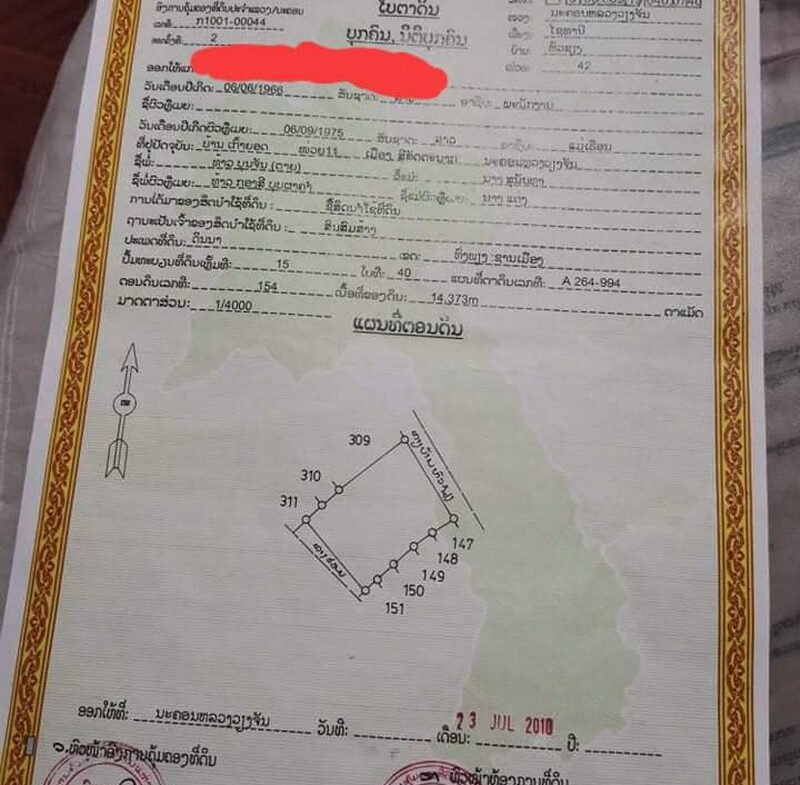 ອົງການຄຸ້ມຄອງທີ່ດິນປະຈຳແຂວງ/ນະຄອນ
ໃບຕາດິນ
ນະຄອນຫລວງວຽງຈັນ
ເລກທີ: ກ1001-00044
ບຸກຄົນ, ນິຕິບຸກຄົນ
ເມືອງ: ໄຊທານີ
ອອກຄັ້ງທີ: 2
ບ້ານ:
ໜ່ວຍ: 42
ອອກໃຫ້ແກ່
ວັນເດືອນປີເກີດ: 06/06/1966 ສັນຊາດ: ອາຊີບ: ພະນັກງານ
ຊື່ຜົວຫຼືເມຍ:
ວັນເດືອນປີເກີດຜົວຫຼືເມຍ: 06/09/1975 ສັນຊາດ: ລາວ ອາຊີບ: ແມ່ເຮືອນ
ທີ່ຢູ່ປັດຈຸບັນ: ບ້ານ ເກົ້າຍອດ ໜ່ວຍ11 ເມືອງ ສີສັດຕະນາກ ນະຄອນຫລວງວຽງຈັນ
ຊື່ພໍ່: ທ້າວ ບຸນຈັນ (ຕາຍ) ຊື່ແມ່: ນາງ
ຊື່ພໍ່ຜົວຫຼືເມຍ: ທ້າວ ກອງສີ ບຸບຜາຄຳ ຊື່ແມ່ຜົວຫຼືເມຍ: ນາງ ແດງ
ການໄດ້ມາຂອງສິດນຳໃຊ້ທີ່ດິນ : ຊື້ສິດນຳໃຊ້ທີ່ດິນ
ຖານະເປັນເຈົ້າຂອງສິດນຳໃຊ້ທີ່ດິນ : ສິນສົມສ້າງ
ປະເພດທີ່ດິນ: ດິນນາ ເຂດ: ທົ່ງພຽງ ຊານເມືອງ
ປຶ້ມທະບຽນທີ່ດິນເຫຼັ້ມທີ: 15 ໃບທີ: 40 ແຜນທີ່ຕາດິນເລກທີ: A 264-994
ຕອນດິນເລກທີ: 154 ເນື້ອທີ່ຂອງດິນ: 14.373m ຕາແມັດ
ມາດຕາສ່ວນ: 1/4000
ແຜນທີ່ຕອນດິນ
ໜ
309
310
311
147
148
149
150
151
ອອກໃຫ້ທີ່: ນະຄອນຫລວງວຽງຈັນ ວັນທີ: ເດືອນ: 23 JUL 2010 ປີ:
ຫົວໜ້າອົງການຄຸ້ມຄອງທີ່ດິນ
ຫົວໜ້າຫ້ອງການທີ່ດິນ